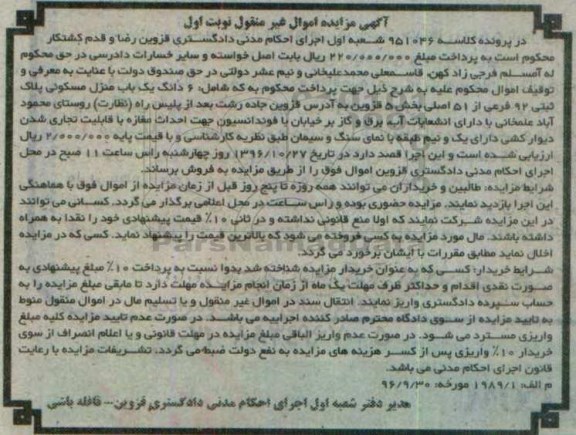 آگهی مزایده اموال غیر منقول نوبت اول
در پرونده کلاسه ۹۵۱۰۴۶ شعبه اول اجرای احکام مدنی دادگستری قزوین رضا و قدم کشتکار
محکوم است به پرداخت مبلغ ۲۲۰/۰۰۰/۰۰۰ ریال بابت اصل خواسته و سایر خسارات دادرسی در حق محکوم
له آمسلم فرجی زاد کهن، قاسمعلی محمدعلیخانی و نیم عشر دولتی در حق صندوق دولت با عنایت به معرفی و
توقیف اموال محکوم علیه به شرح ذیل جهت پرداخت محکوم به که شامل: ۶ دانگ یک باب منزل مسکونی پلاک
ثبتی ۹۲ فرعی از ۵۱ اصلی بخش ۵ قزوین به آدرس قزوین جاده رشت بعد از پلیس راه (نظارت) روستای محمود
آباد علمخانی با دارای انشعابات آب، برق و گاز بر خیابان با فونداسیون جهت احداث مغازه با قابلیت تجاری شدن
دیوار کشی دارای یک و نیم طبقه با نمای سنگ و سیمان طبق نظریه کارشناسی و با قیمت پایه ۲/۰۰۰/۰۰۰/۰۰۰ ریال
ارزیابی شده است و این اجرا قصد دارد در تاریخ ۱۳۹۶/۱۰/۲۷ روز چهارشنبه راس ساعت ۱۱ صبح در محل
اجرای احکام مدنی دادگستری قزوین اموال فوق را از طریق مزایده به فروش برساند.
شرایط مزایده: طالبین و خریداران می توانند همه روزه تا پنج روز قبل از زمان مزایده از اموال فوق با هماهنگی
این اجرا بازدید نمایند. مزایده حضوری بوده و راس ساعت در محل اعلامی برگذار می گردد. کسانی می توانند
در این مزایده شرکت نمایند که اولا منع قانونی نداشته و در ثانی ۱۰٪ قیمت پیشنهادی خود را نقدا به همراه
داشته باشند. مال مورد مزایده به کسی فروخته می شود که بالاترین قیمت را پیشنهاد نماید. کسی که در مزایده
اخلال نماید مطابق مقررات با ایشان برخورد می گردد.
شرایط خریدار: کسی که به عنوان خریدار مزایده شناخته شد بدوا نسبت به پرداخت ۱۰٪ مبلغ پیشنهادی به
صورت نقدی اقدام و حداکثر ظرف مهلت یک ماه از زمان انجام مزایده مهلت دارد تا مابقی مبلغ مزایده را به
حساب سپرده دادگستری واریز نمایند. انتقال سند در اموال غیر منقول و یا تسلیم مال در اموال منقول منوط
به تایید مزایده از سوی دادگاه محترم صادر کننده اجراییه می باشد. در صورت عدم تایید مزایده کلیه مبلغ
واریزی مسترد می شود. در صورت عدم واریز الباقی مبلغ مزایده در مهلت قانونی و یا اعلام انصراف از سوی
خریدار ۱۰٪ واریزی پس از کسر هزینه های مزایده به نفع دولت ضبط می گردد. تشریفات مزایده با رعایت
قانون اجرای احکام مدنی می باشد.
م الف: ۱۹۸۹/۱ مورخه: ۹۶/۹/۳۰
مدیر دفتر شعبه اول اجرای احکام مدنی دادگستری قزوین- قافله باشی